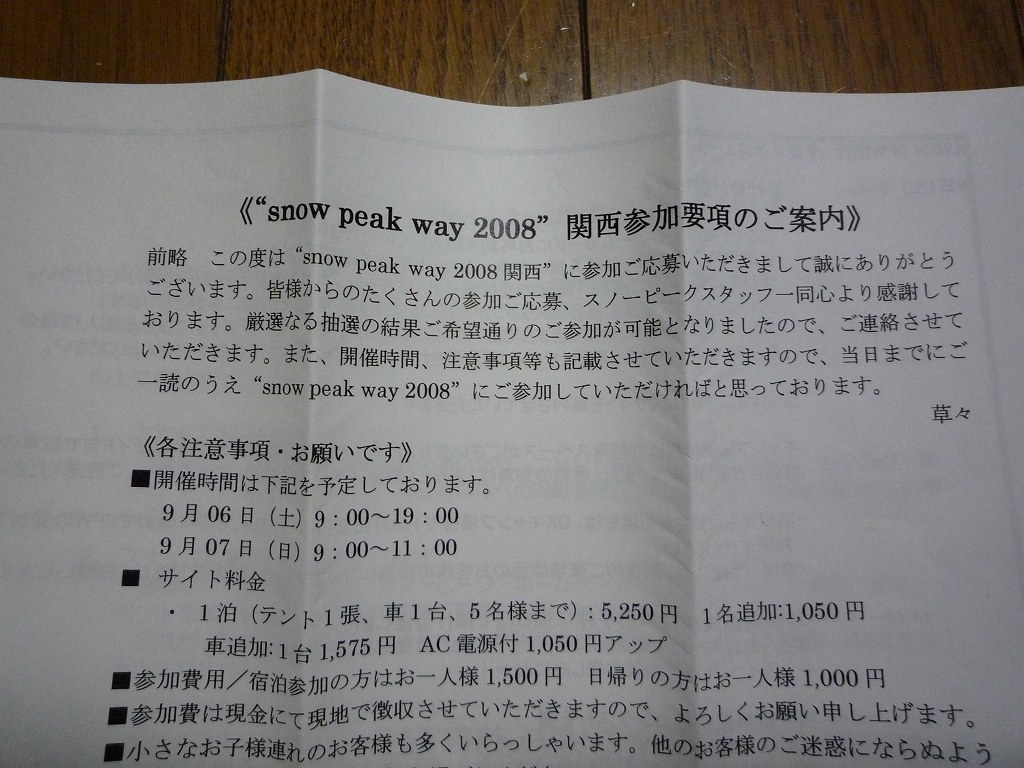 《“snow peak way 2008” 関西参加要項のご案内》
前略　この度は“snow peak way 2008 関西”に参加ご応募いただきまして誠にありがとう
ございます。皆様からのたくさんの参加ご応募、スノーピークスタッフ一同心より感謝して
おります。厳選なる抽選の結果ご希望通りのご参加が可能となりましたので、ご連絡させて
いただきます。また、開催時間、注意事項等も記載させていただきますので、当日までにご
一読のうえ“snow peak way 2008”にご参加していただければと思っております。
草々
《各注意事項・お願いです》
■開催時間は下記を予定しております。
9月06日（土）9：00～19：00
9月07日（日）9：00～11：00
■ サイト料金
・ 1泊（テント1張、車1台、5名様まで）：5,250円　1名追加:1,050円
車追加:1台1,575円　AC電源付1,050円アップ
■参加費用／宿泊参加の方はお一人様1,500円　日帰りの方はお一人様1,000円
■参加費は現金にて現地で徴収させていただきますので、よろしくお願い申し上げます。
■小さなお子様連れのお客様も多くいらっしゃいます。他のお客様のご迷惑にならぬよう